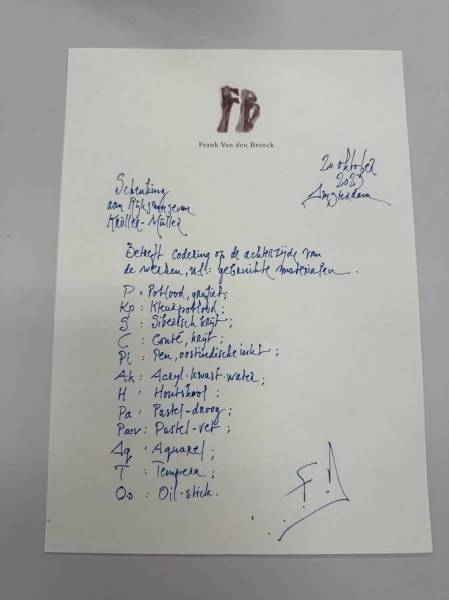 FB
Frank Van den Broeck
20 oktober
2023
Amsterdam
Schenking
aan Rijksmuseum
Kröller-Müller
Betreft codering op de achterzijde van
de werken, n.l. gebruikte materialen.
P : Potlood, grafiet;
Kp : Kleurpotlood;
S : Siberisch krijt;
C : Conté, krijt;
Pi : Pen, oostindische inkt;
Ak : Acryl-kwast-water;
H : Houtskool;
Pa : Pastel-droog;
Pav : Pastel-vet;
Aq : Aquarel;
T : Tempera;
Os : Oil-stick.